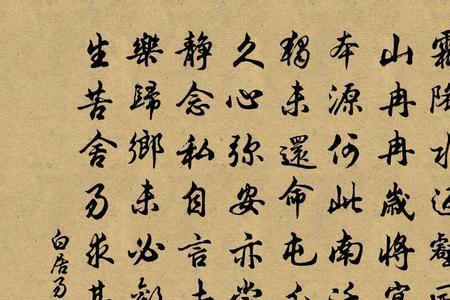 霜降水返壑
山冉冉歲將宴
本源何此南迁
獨未還命屯分
久心弥安亦嘗
静念私自言去
樂歸鄉未必歡
生苦舍易求其
白居易